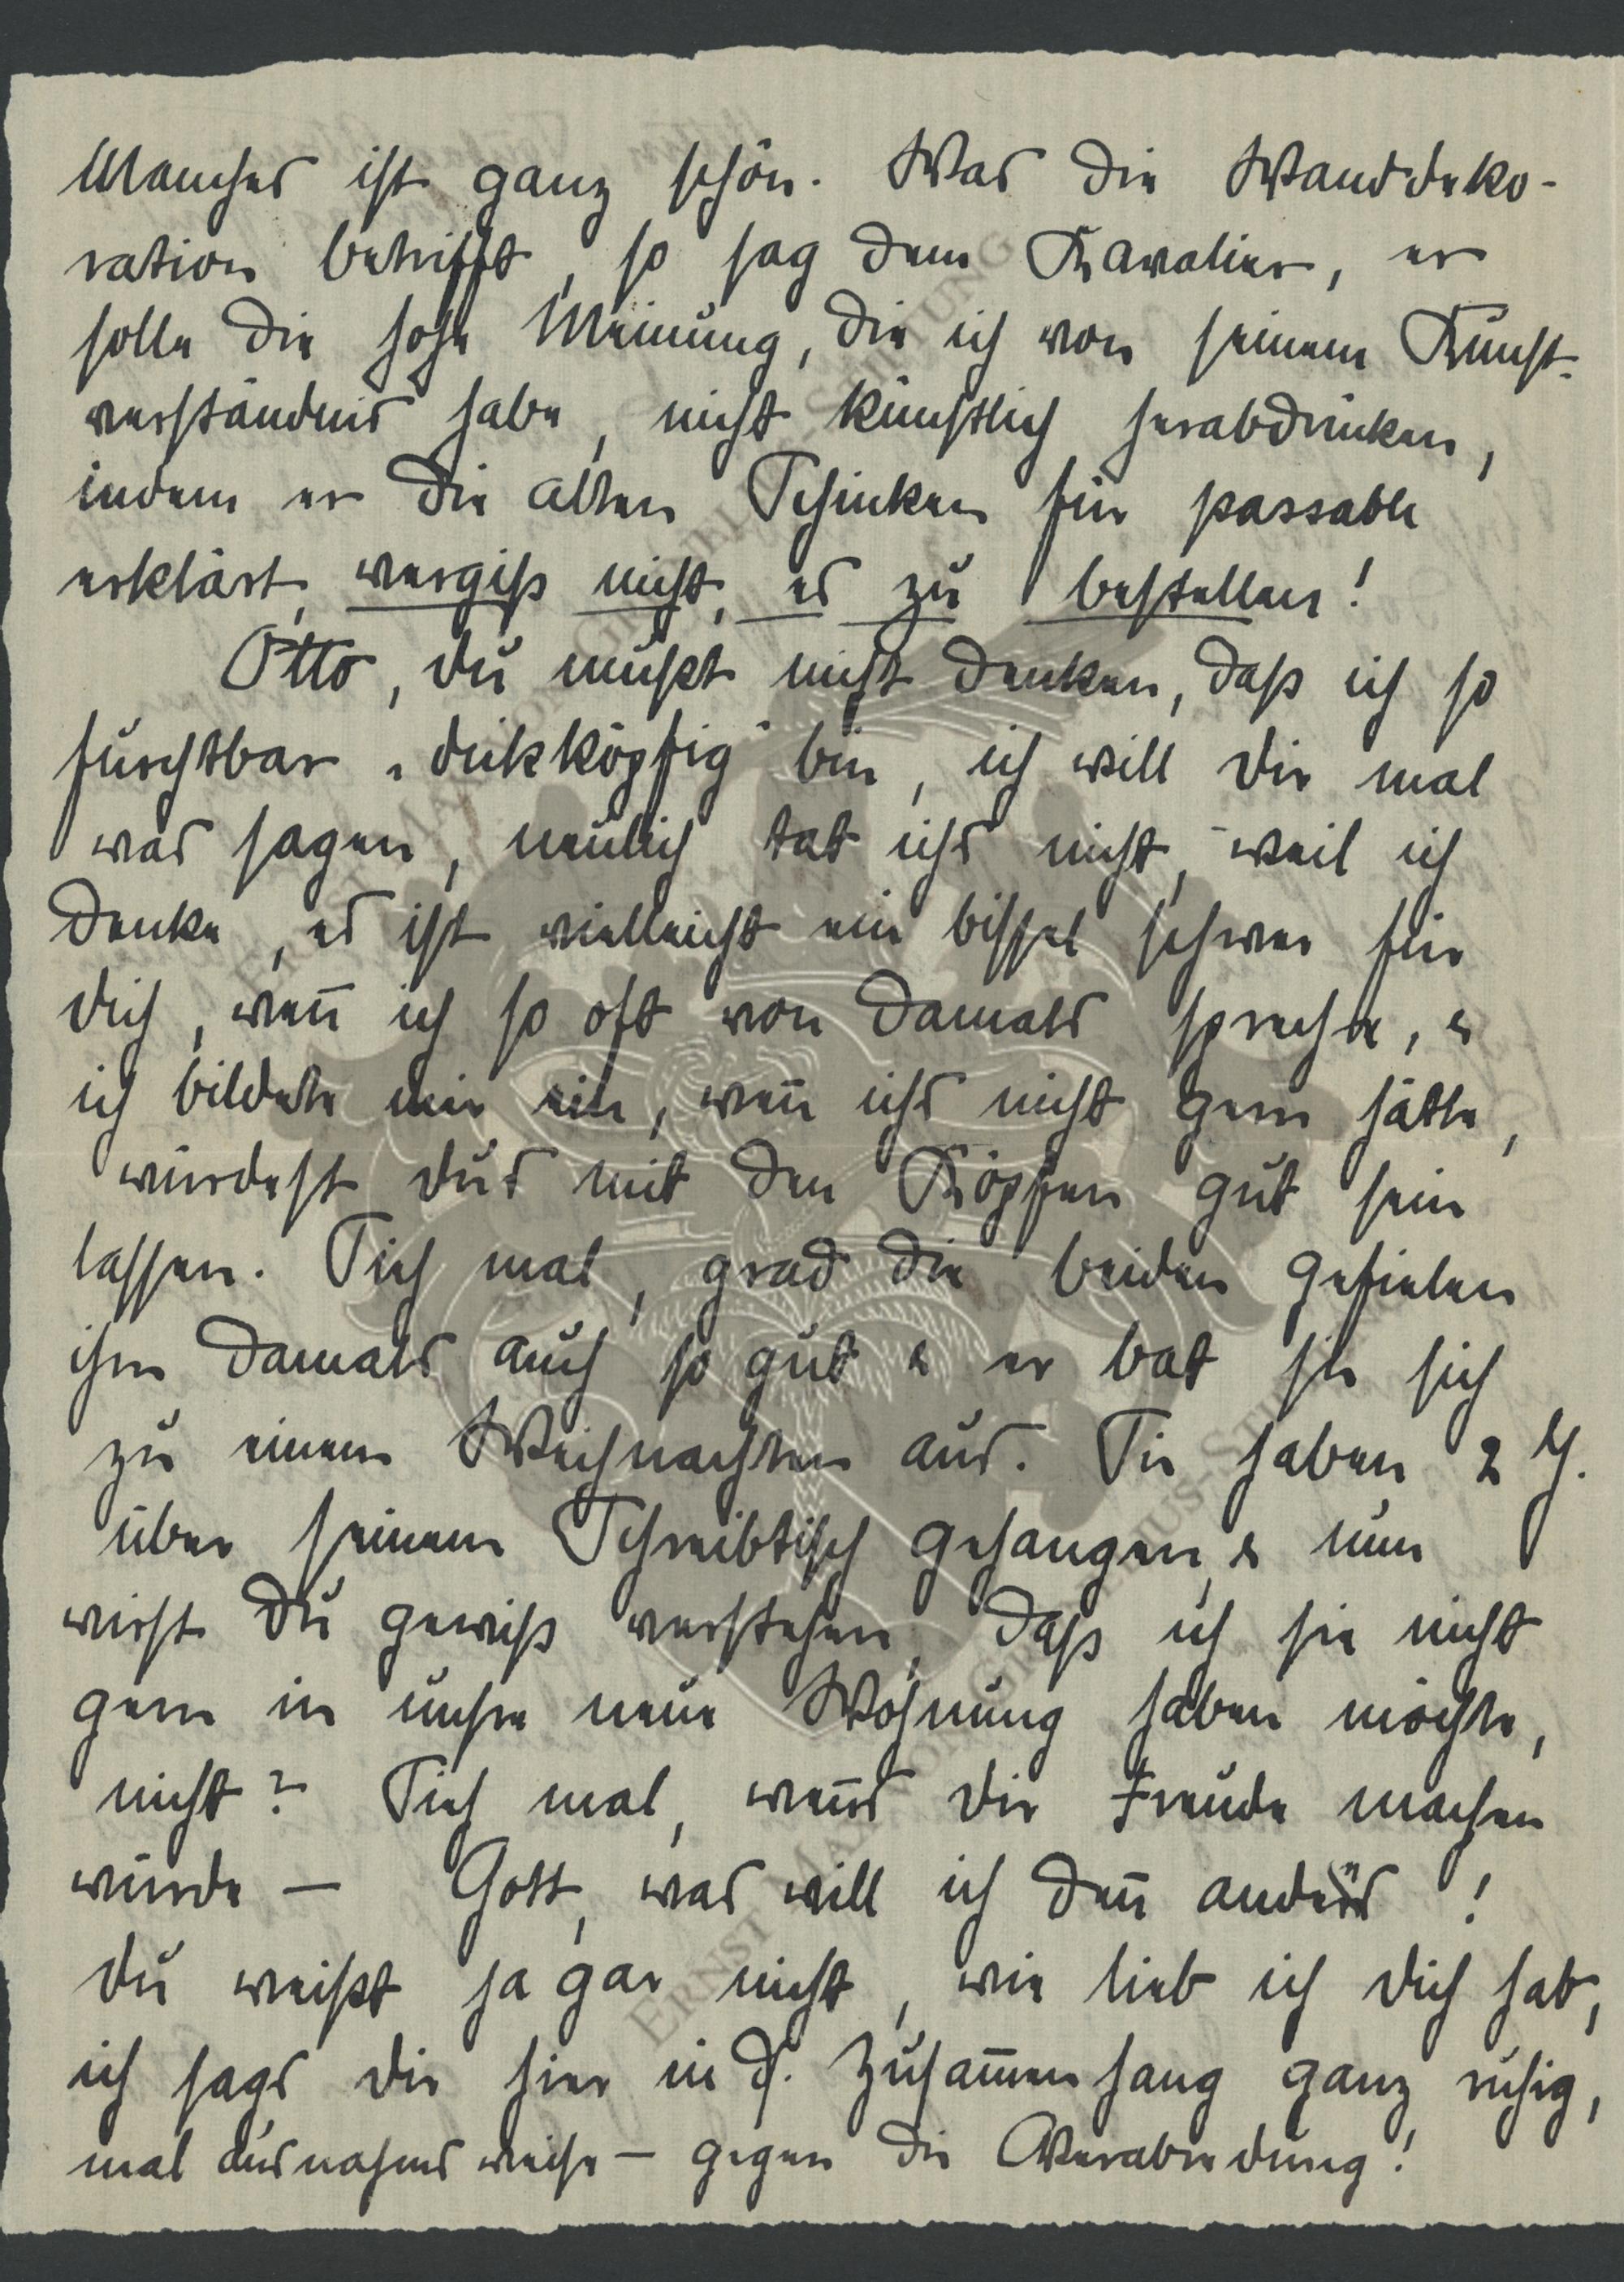 Manches ist ganz schön. Was die Wanddeko-
ration betrifft, so sag dem Kavalier, er
solle die hohe Meinung, die ich von seinem Kunst-
verständnis habe, nicht künstlich herabdrücken,
indem er die alten Schinken für passable
erklärt, vergiß nicht, es zu bestellen!
Otto, du mußt nicht denken, daß ich so
furchtbar „dickköpfig“ bin, ich will dir mal
was sagen, neulich tat ichs nicht, weil ich
denke, es ist vielleicht ein bissel schwer für
dich, wen̄ ich so oft von damals spreche, &
ich bildete mir ein, wen̄ ichs nicht gern hätte,
würdest dus mit den Köpfen gut sein
lassen. Sieh mal, grad die beiden gefielen
ihm damals auch so gut & er bat sie sich
zu einem Weihnachten aus. Sie haben 2 J.
über seinem Schreibtisch gehangen, & nun
wirst du gewiß verstehen, daß ich sie nicht
gern in unsre neue Wohnung haben möchte,
nicht? Sieh mal, wen̄s dir Freude machen
würde — Gott, was will ich den̄ anders!
du weißt ja gar nicht, wie lieb ich dich hab,
ich sags dir hier in d. Zusam̄enhang ganz ruhig,
mal ausnahmsweise — gegen die Verabredung!
ERNST MAX VON GRUNELIUS-STIFTUNG
ERNST MAX VON GRUNELIUS-STIFTUNG